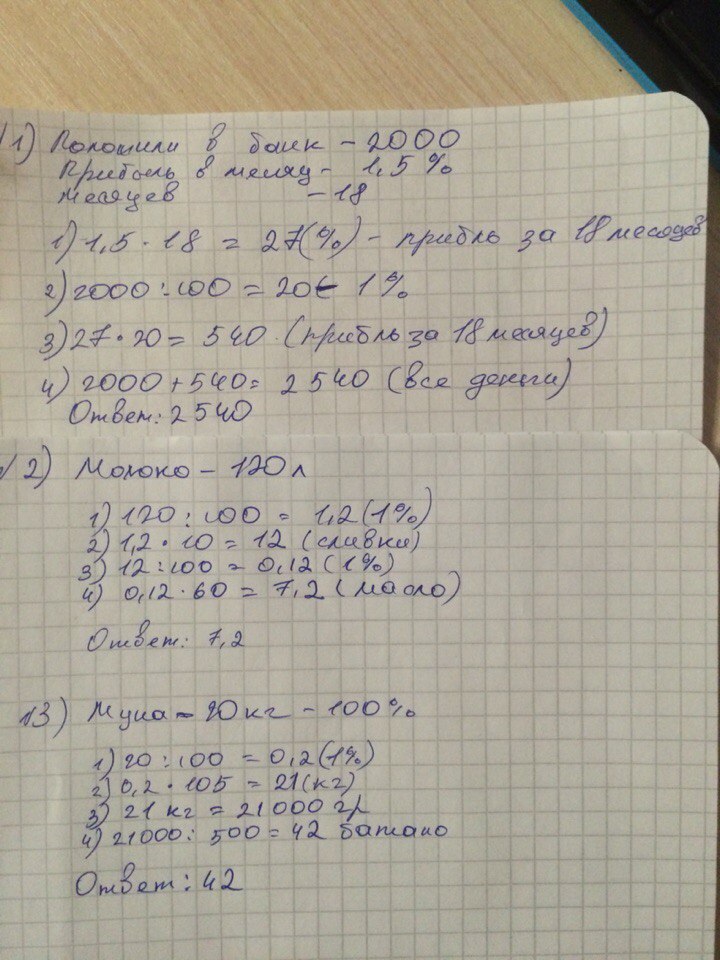 1) Положили в банк - 2000
Прибыль в месяц - 1,5%
Месяцев - 18
1) 1,5 · 18 = 27(%) - прибль за 18 месяцев
2) 2000 : 100 = 20 - 1%
3) 27 · 20 = 540 (прибль за 18 месяцев)
4) 2000 + 540 = 2540 (все деньги)
Ответ: 2540
2) Молоко - 120л
1) 120 : 100 = 1,2 (1%)
2) 1,2 · 10 = 12 (сливки)
3) 12 : 100 = 0,12 (1%)
4) 0,12 · 60 = 7,2 (масло)
Ответ: 7,2
13) Мука - 20 кг - 100%
1) 20 : 100 = 0,2 (1%)
2) 0,2 · 105 = 21 (кг)
3) 21 кг = 21000 гр
4) 21000 : 500 = 42 батано
Ответ: 42